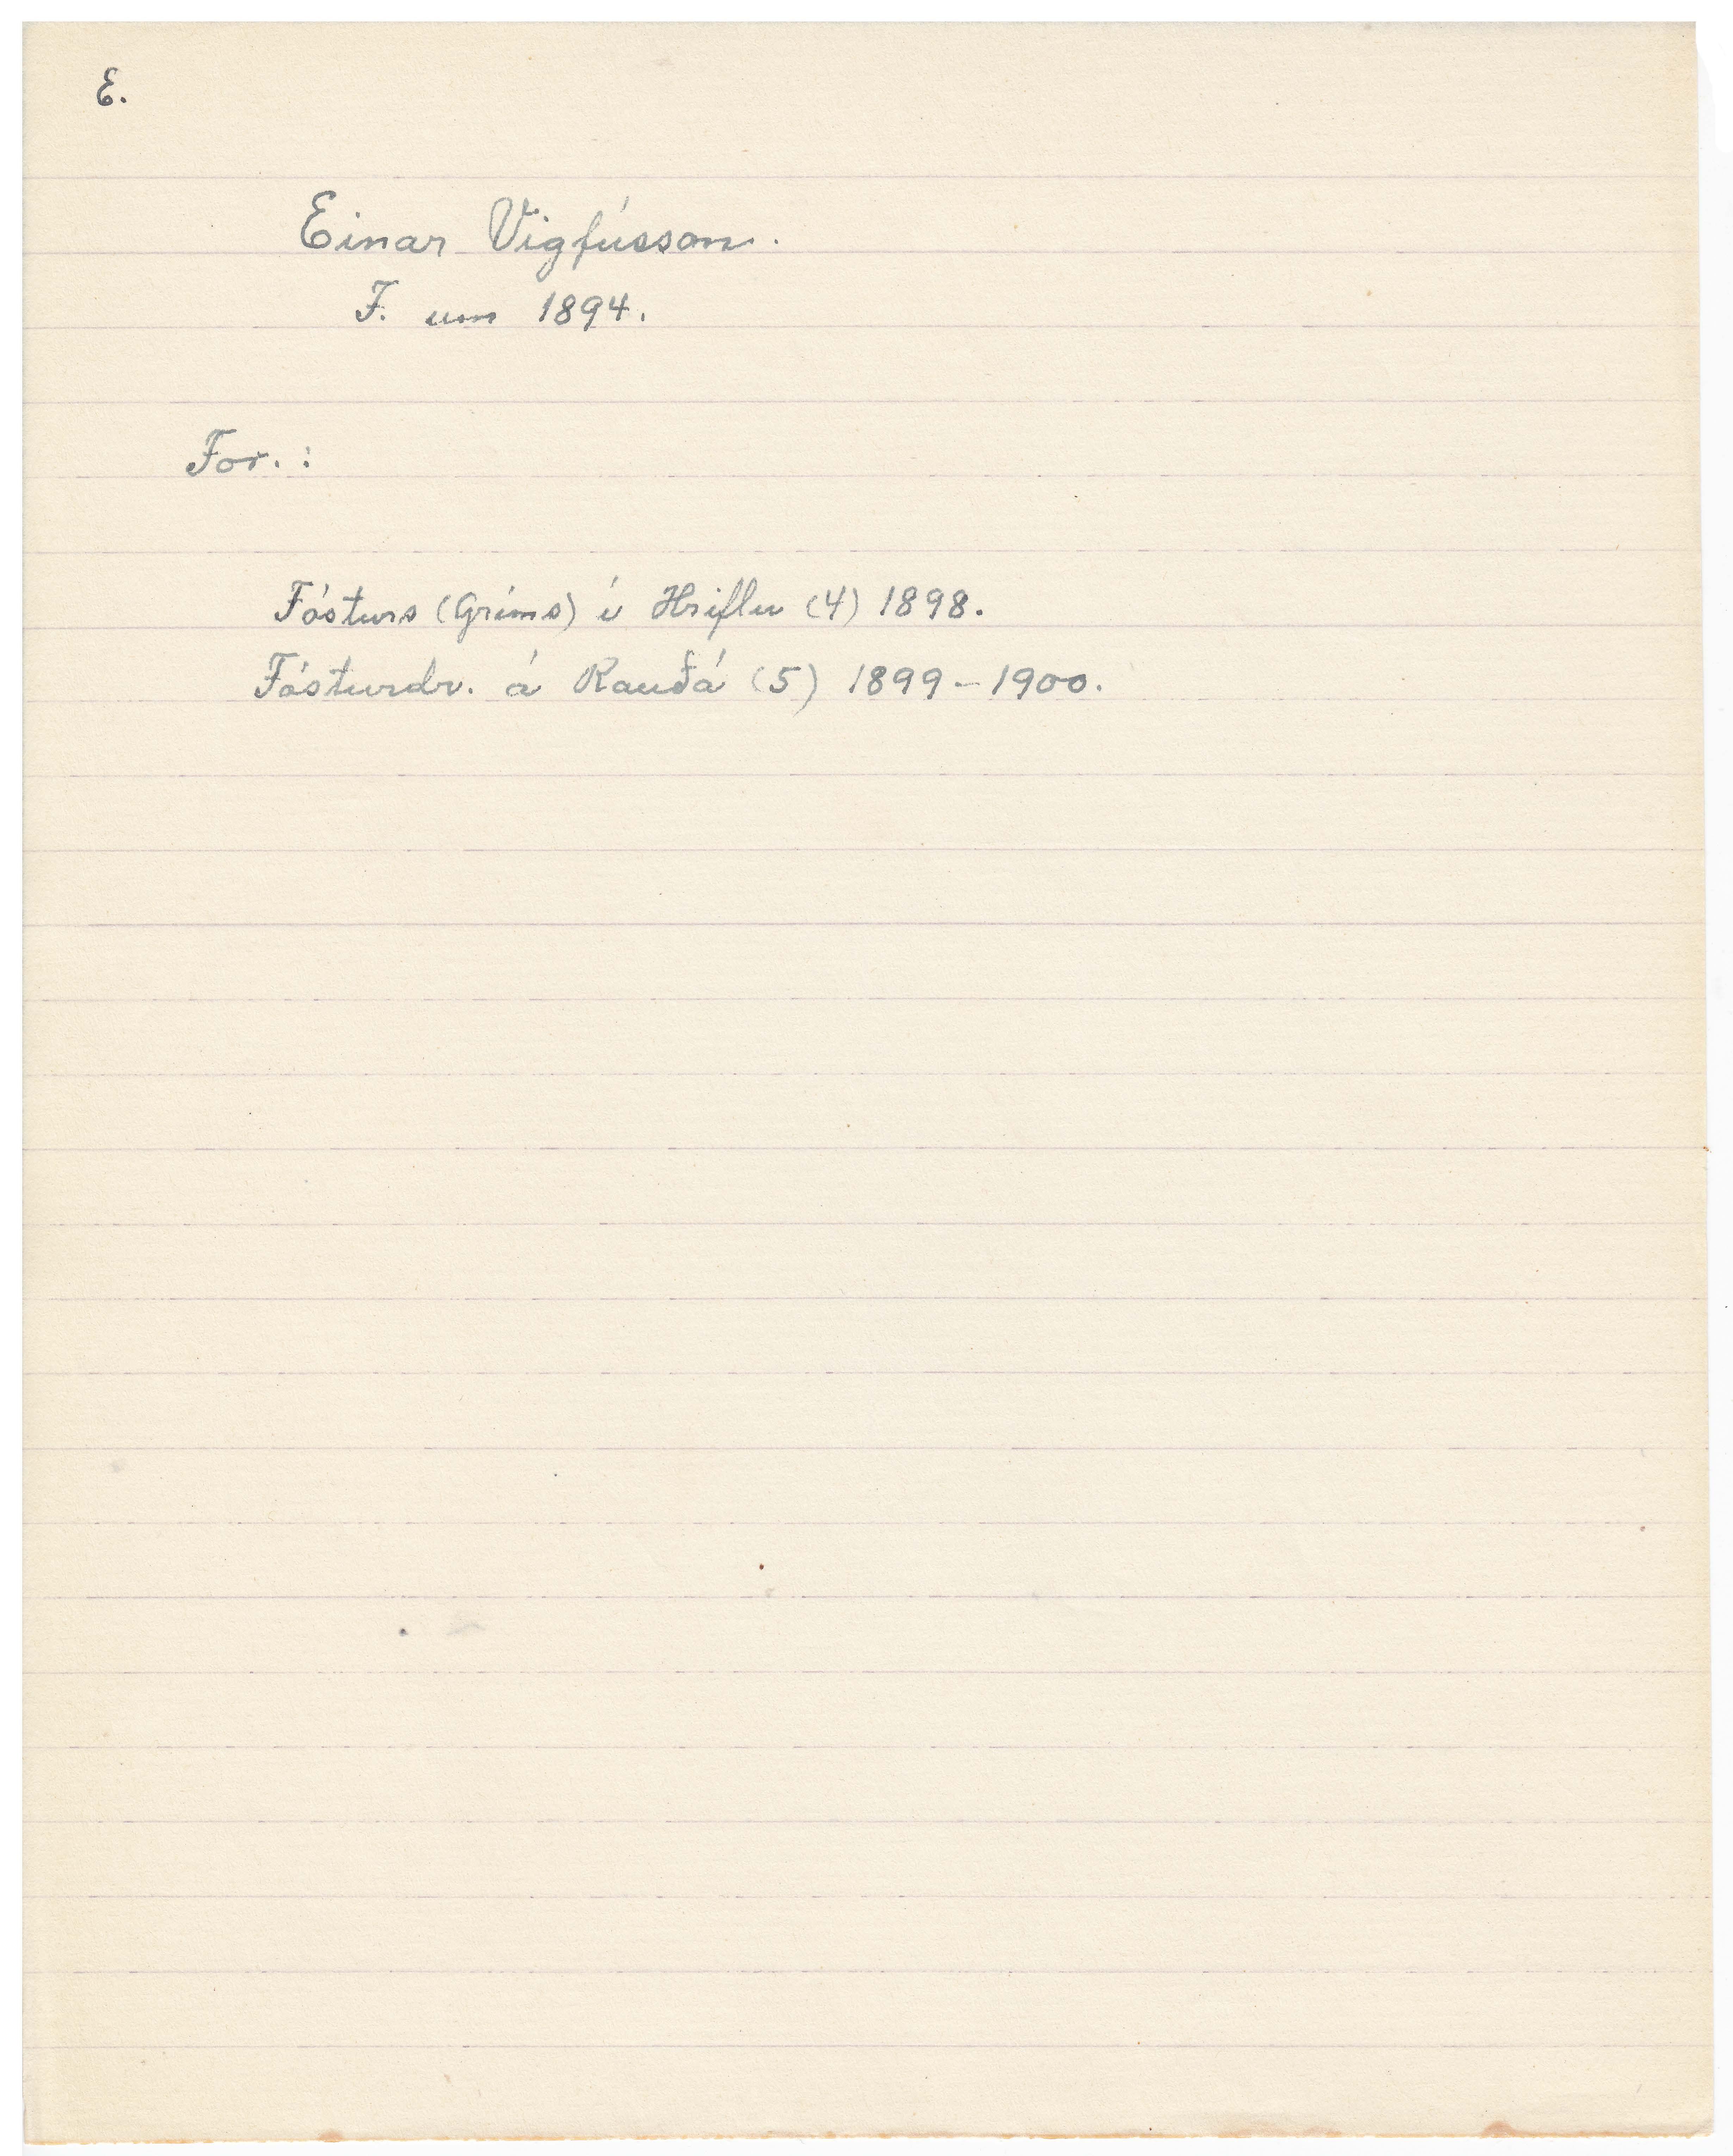 E.
Einar Vigfússon.
F. um 1894.
For. :
Fósturs (Gríms) í Hriflu (4) 1898.
Fósturdr. á Rauðá (5) 1899-1900.